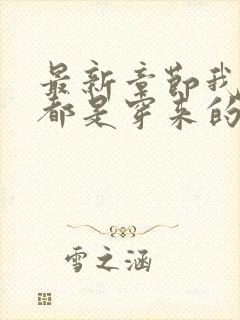 最新章节我
都是穿来的
雪之涵